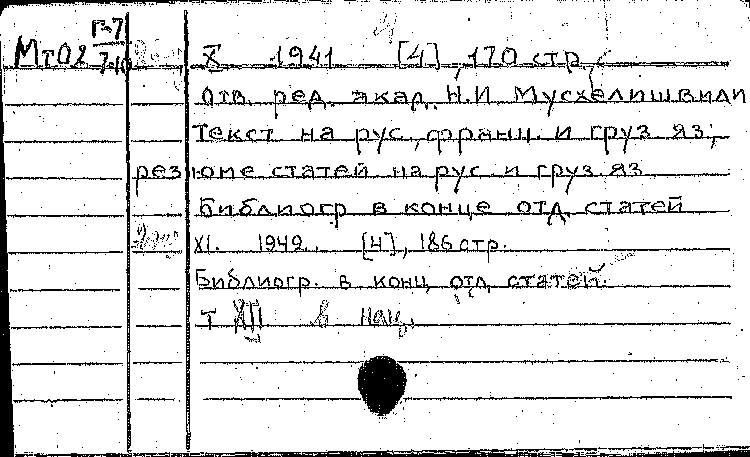 Г-7
Мт02
X 1941 [4], 170 стр.
Отв. ред. акад. Н.И Мусхелишвили
Текст на рус., франц. и груз яз;
резюме статей на рус и груз яз
Библиогр в конце отд. статей
XI. 1942. [4], 186 стр.
Библиогр. в конц отд. статей.
т XII в нац.